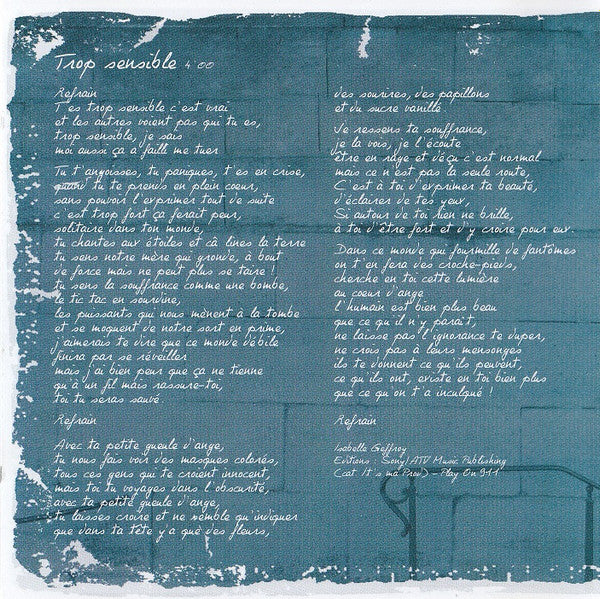 Trop sensible 4'00
Refrain
T'es trop sensible c'est vrai
et les autres voient pas qui tu es,
trop sensible, je sais
moi aussi ça a faille me tuer
Tu t'angoisses, tu paniques, t'es en crise,
quand tu te prends en plein coeur,
sans pouvoir l'exprimer tout de suite
c'est trop fort ça ferait peur,
solitaire dans ton monde,
tu chantes aux étoiles et câlines la terre
tu sens notre mère qui gronde, à bout
de force mais ne peut plus se taire !
tu sens la souffrance comme une bombe,
le tic tac en sourdine,
les puissants qui nous mènent à la tombe
et se moquent de notre sort en prime,
j'aimerais te dire que ce monde débile
finira par se réveiller
mais j'ai bien peur que ça ne tienne
qu'à un fil mais rassure-toi,
toi tu seras sauvé.
Refrain
Avec ta petite gueule d'ange,
tu nous fais voir des masques colorés,
tous ces gens qui te croient innocent
mais toi tu voyages dans l'obscurité,
avec ta petite gueule d'ange,
tu laisses croire et ne semble qu'indiquer
que dans ta tête y a que des fleurs,
des sourires, des papillons
et du sucre vanille.
Je ressens ta souffrance,
je la vois, je l'écoute
être en rage et déçu c'est normal
mais ce n'est pas la seule route,
C'est à toi d'exprimer ta beauté,
d'éclairer de tes yeux,
Si autour de toi rien ne brille,
à toi d'être fort et d'y croire pour eux.
Dans ce monde qui fourmille de fantômes
on t'en fera des croche-pieds,
cherche en toi cette lumière
au coeur d'ange
l'humain est bien plus beau
que ce qu'il n'y paraît,
ne laisse pas l'ignorance te duper,
ne crois pas à leurs mensonges
ils te donnent ce qu'ils peuvent,
ce qu'ils ont, existe en toi bien plus
que ce qu'on t'a inculqué !
Refrain
Isabelle Geffroy
Editions : Sony/ATV Music Publishing
(cat. It's ma Prod) - Play On 911